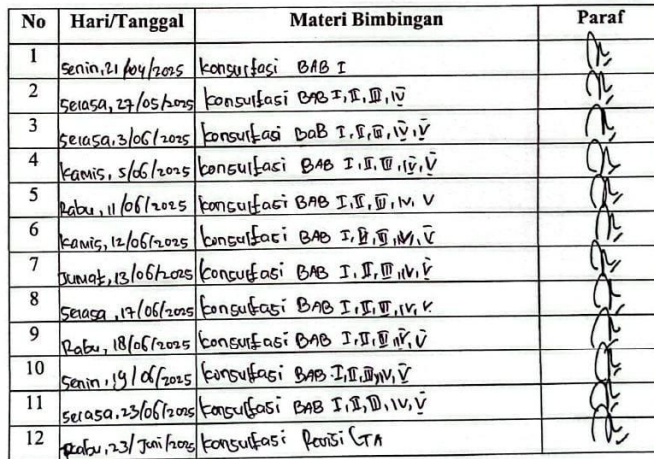 No Hari/Tanggal Materi Bimbingan Paraf
1 Senin, 21/04/2025 konsultasi BAB I
2 Selasa, 27/05/2025 konsultasi BAB I, II, III, IV
3 Selasa, 3/06/2025 konsultasi BaB I, II, III, IV, V
4 Kamis, 5/06/2025 konsultasi BAB I, II, III, IV, V
5 Rabu, 11/06/2025 konsultasi BAB I, II, III, IV, V
6 Kamis, 12/06/2025 konsultasi BAB I, II, III, IV, V
7 Jumat, 13/06/2025 konsultasi BAB I, II, III, IV, V
8 Selasa, 17/06/2025 konsultasi BAB I, II, III, IV, V
9 Rabu, 18/06/2025 konsultasi BAB I, II, III, IV, V
10 Senin, 19/06/2025 konsultasi BAB I, II, III, IV, V
11 Selasa, 23/06/2025 konsultasi BAB I, II, III, IV, V
12 Rabu, 23/Juni/2025 konsultasi Revisi TA